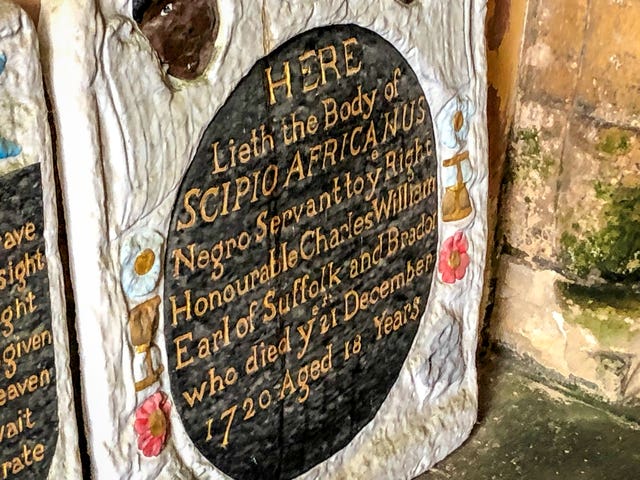 HERE
Lieth the Body of
SCIPIO AFRICANUS
Negro Servant to yᵉ Right
Honourable Charles William
Earl of Suffolk and Bradon
who died yᵉ 21ˢᵗ December
1720 Aged 18 Years
ave
sight
ght
given
eaven
wait
rate